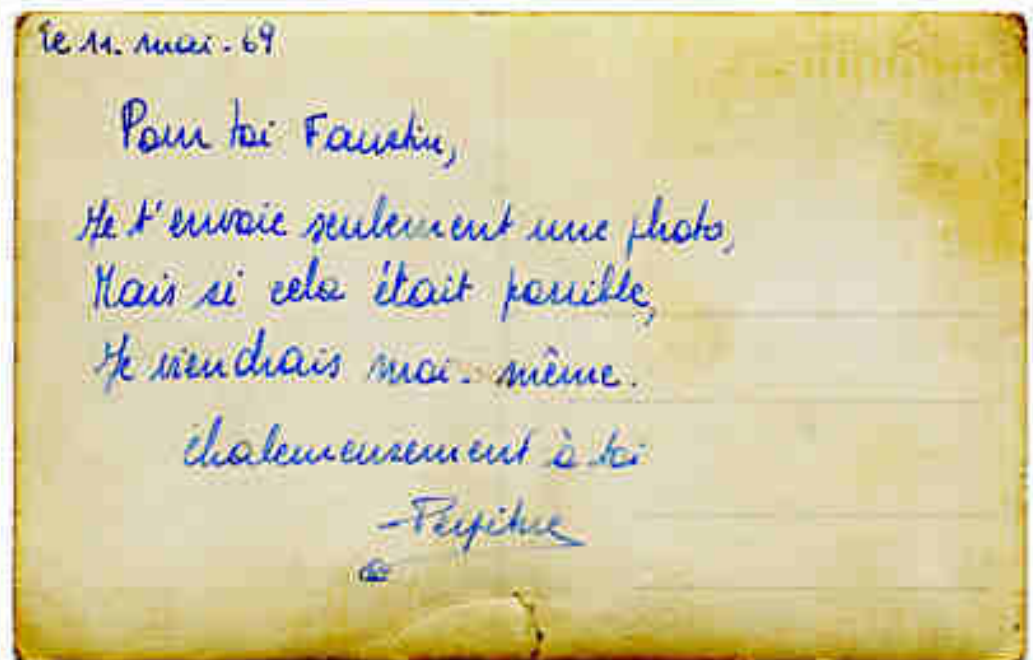 Le 11. mai. 69
Pour toi Faustin,
Je t'envoie seulement une photo,
Mais si cela était possible,
Je viendrais moi-même.
chaleureusement à toi